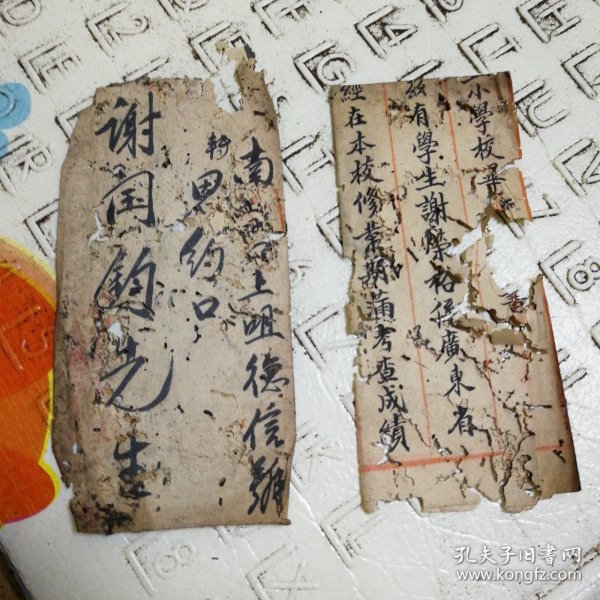 南
上咀德信號
轉
男約口
謝国鈞先生
小學校畢
茲有學生謝榮裕係廣東省
經在本校修業期滿考查成績
孔夫子旧书网
www.kongfz.com